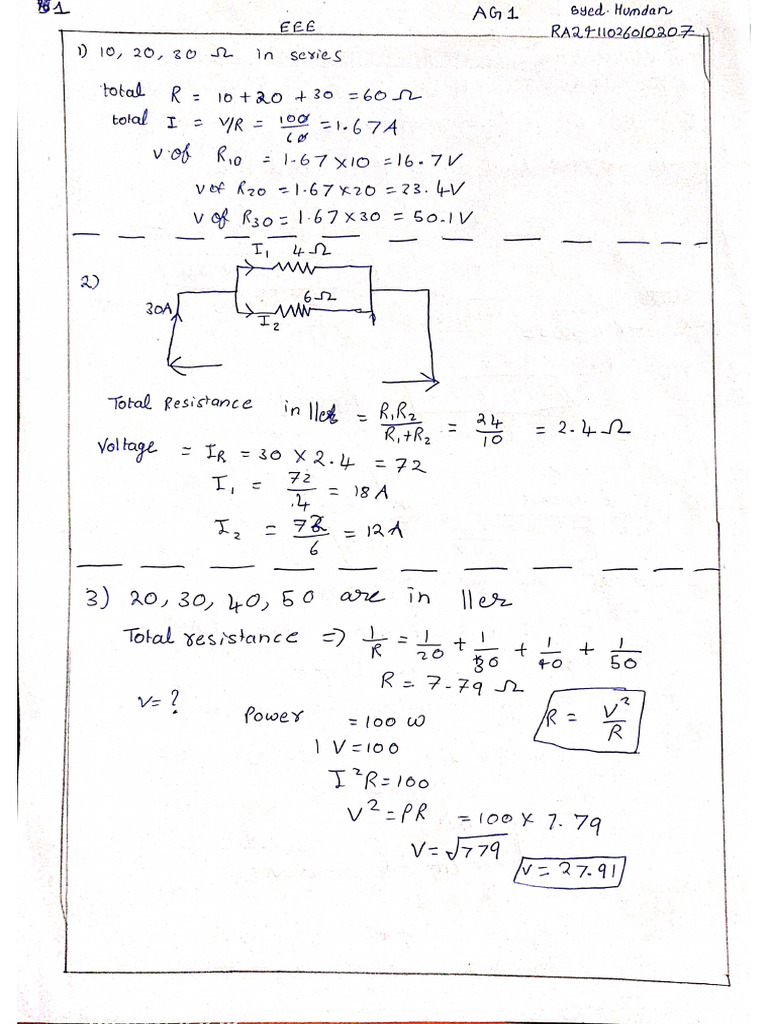 1
AG1
Syed. Humdan
EEE
RA2411026010207
1) 10, 20, 30 Ω in series
total R = 10 + 20 + 30 = 60 Ω
total I = V/R = 100/60 = 1.67A
v of R10 = 1.67 × 10 = 16.7V
v of R20 = 1.67 × 20 = 23.4V
v of R30 = 1.67 × 30 = 50.1V
I1 4Ω
2)
30A
6Ω
I2
Total Resistance in ller = R1R2/R1+R2 = 24/10 = 2.4 Ω
Voltage = IR = 30 × 2.4 = 72
I1 = 72/4 = 18A
I2 = 72/6 = 12A
3) 20, 30, 40, 50 are in ller
Total resistance => 1/R = 1/20 + 1/30 + 1/40 + 1/50
R = 7.79 Ω
V = ?
Power = 100 W
R = V²/R
IV = 100
I²R = 100
V² = PR = 100 × 7.79
V = √779
V = 27.91